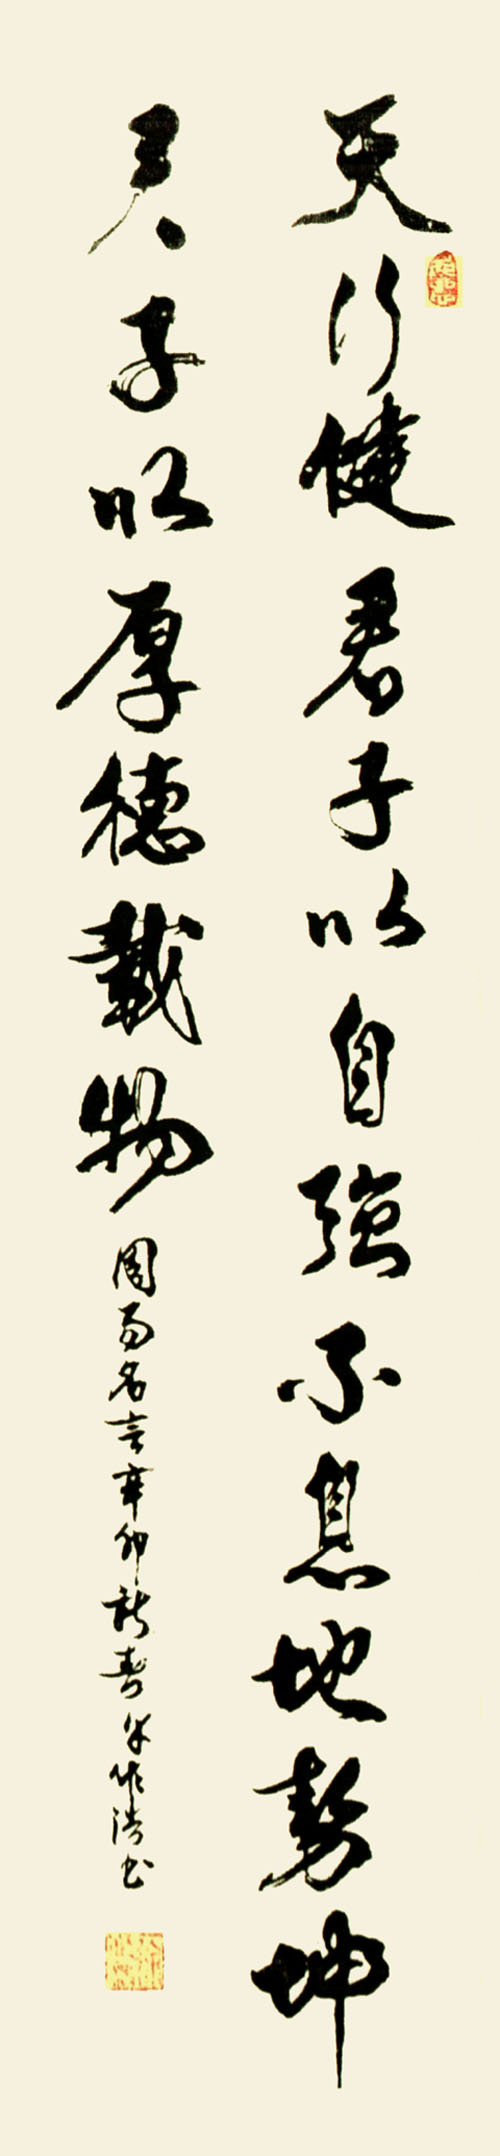 天行健君子以自強不息地勢坤
君子以厚德載物
周易名言辛卯新春
書